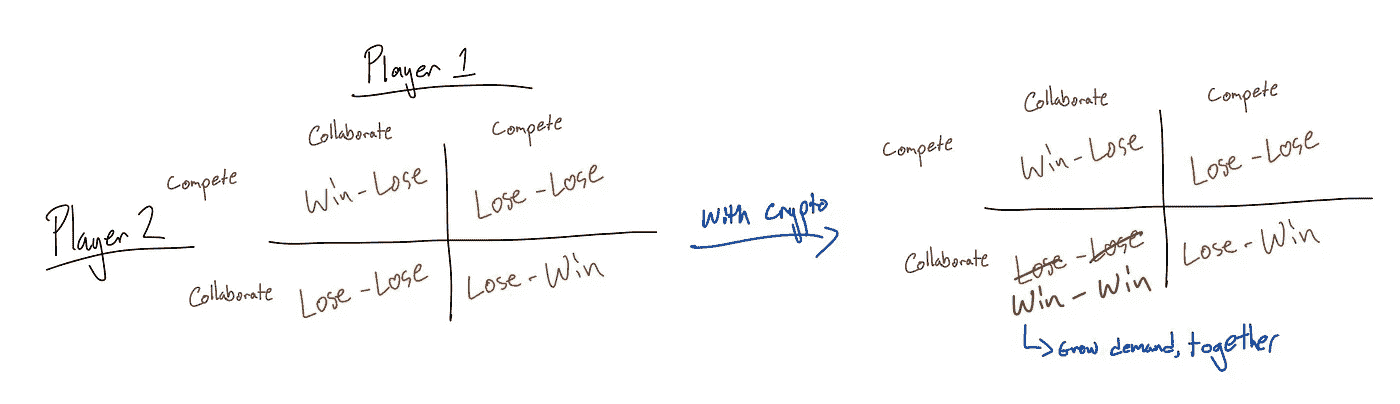 Player 1
Collaborate Compete
Compete Win - Lose Lose - Lose
Player 2
Collaborate Lose - Lose Lose - Win
With Crypto
Collaborate Compete
Compete Win - Lose Lose - Lose
Collaborate Lose - Lose Lose - Win
Win - Win
Grow demand, together